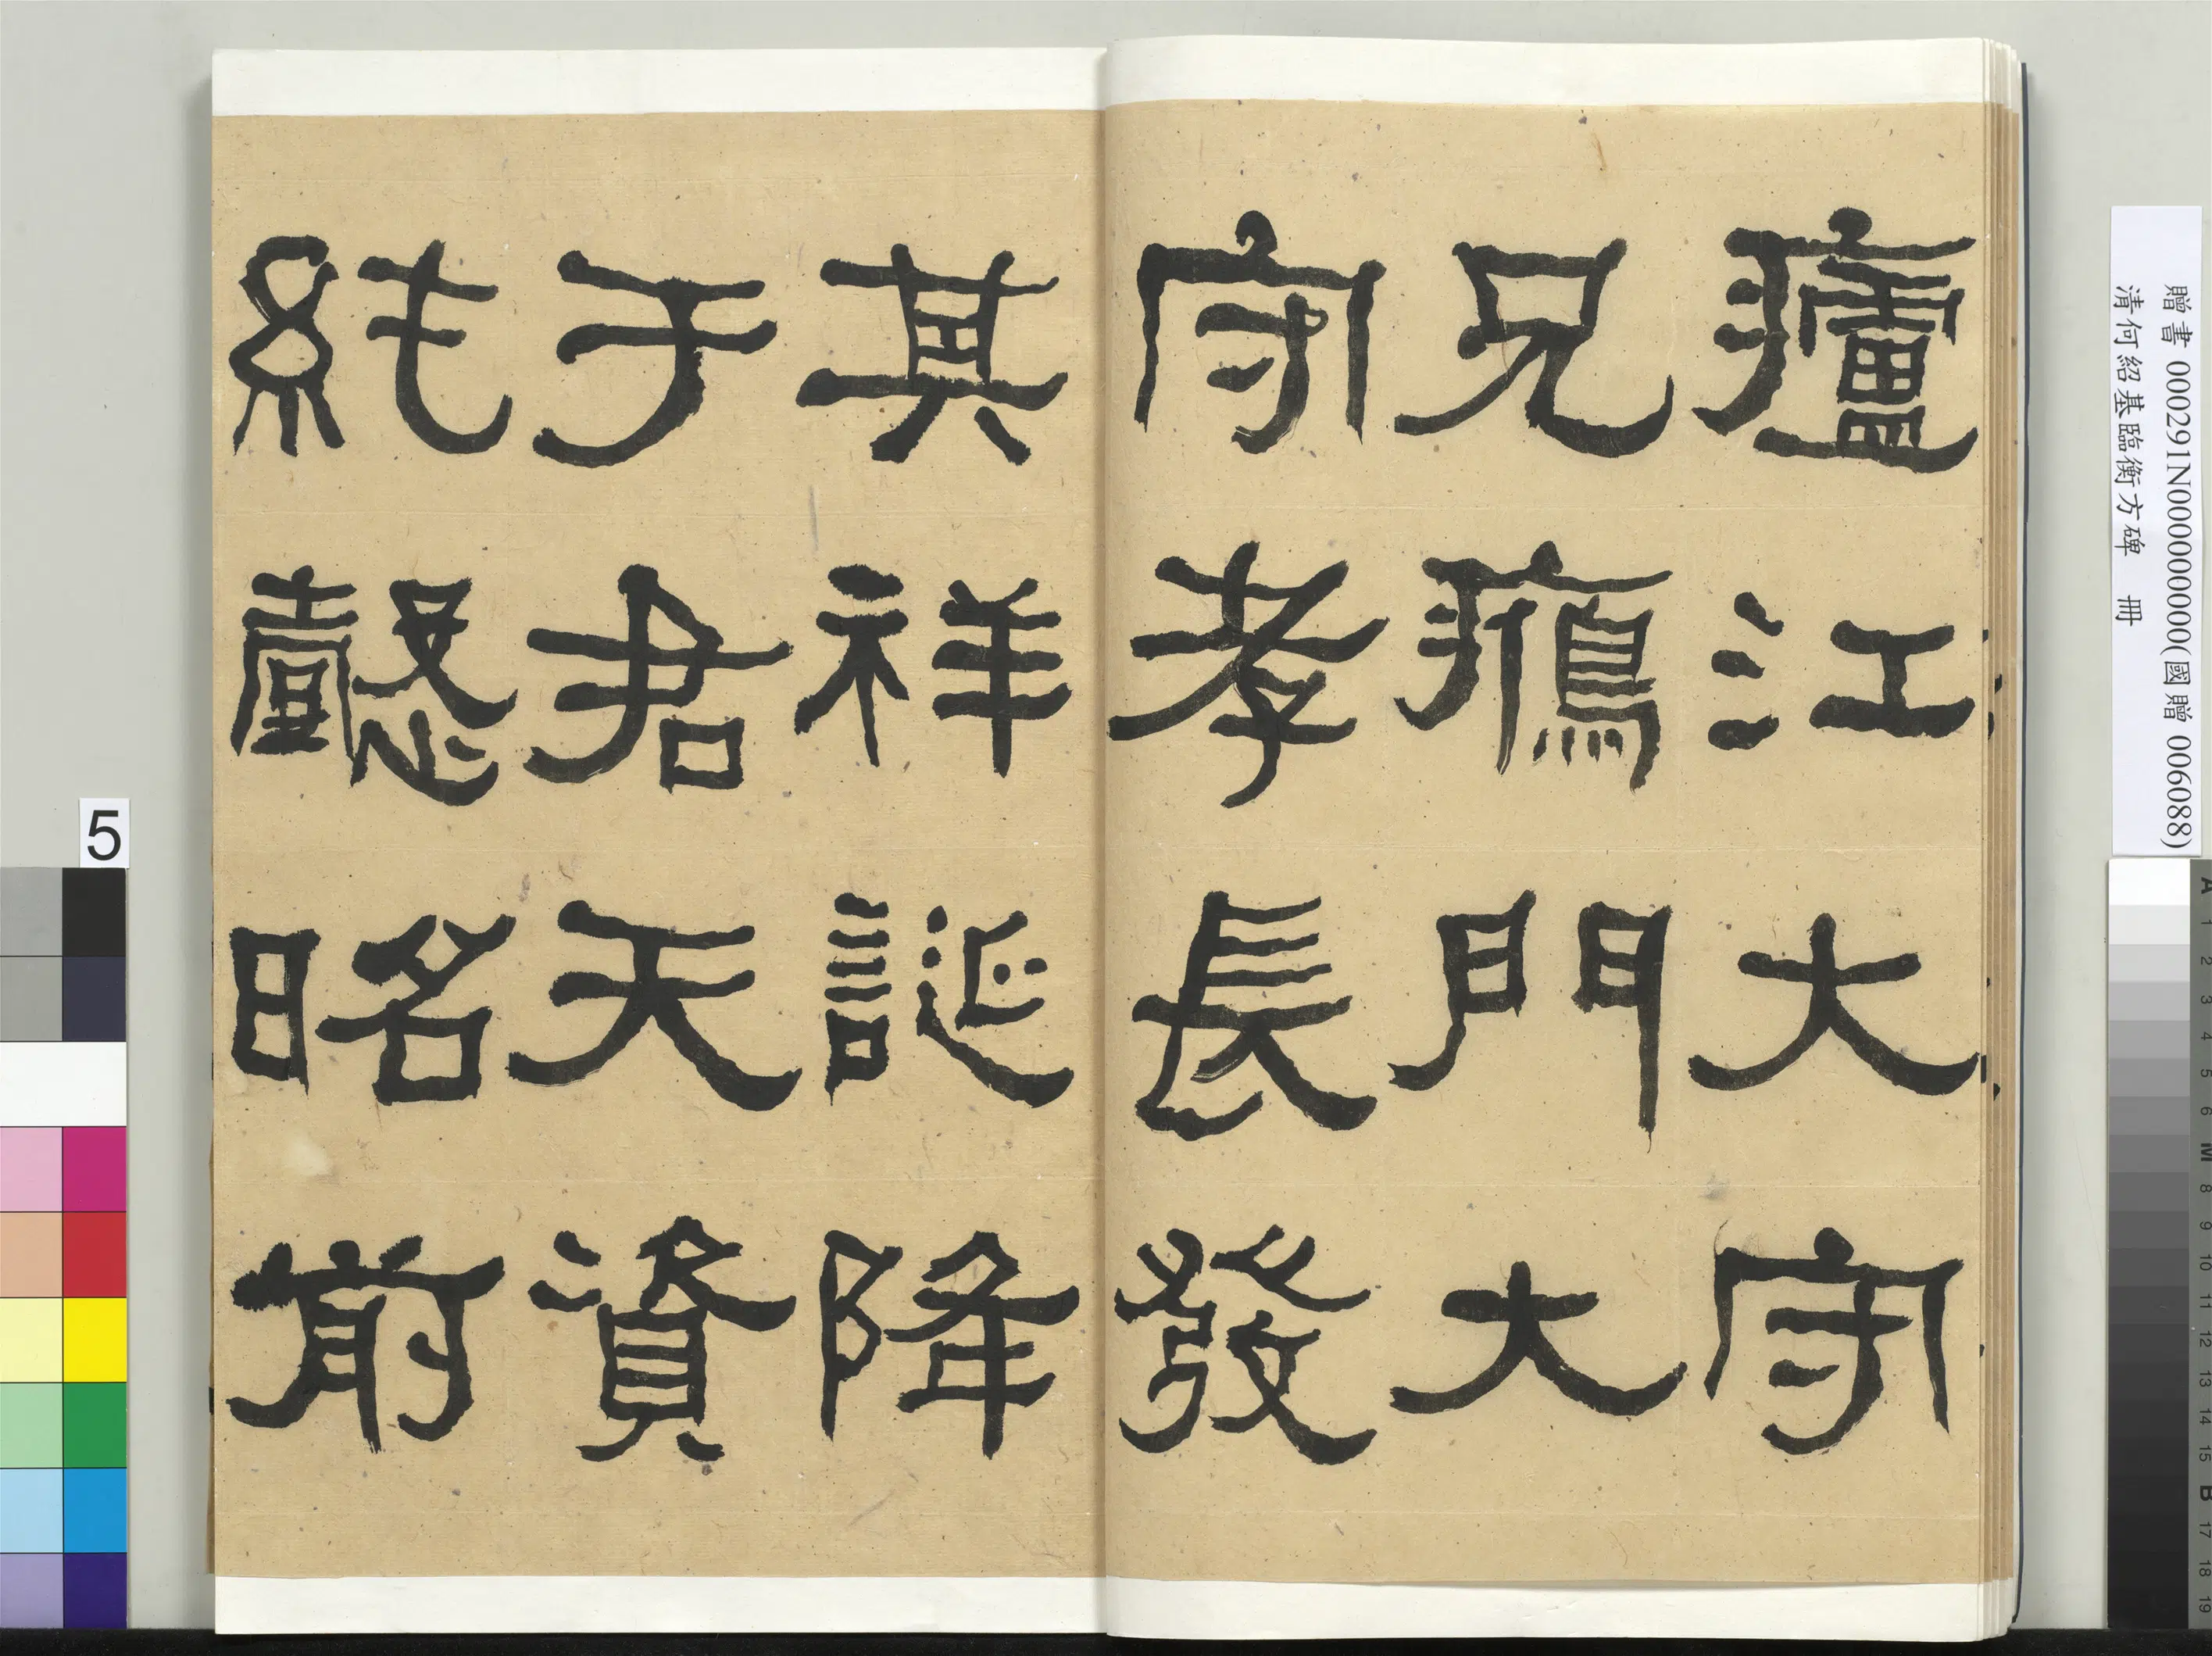 廬江大守
兄鴈門大
守孝長發
其祥誕降
于君天資
純懿昭前
5
贈書 000291N000000000(國贈 006088)
清何紹基臨衡方碑 冊
A 1 2 3 4 5 6 M 8 9 10 11 12 13 14 15 B 17 18 19